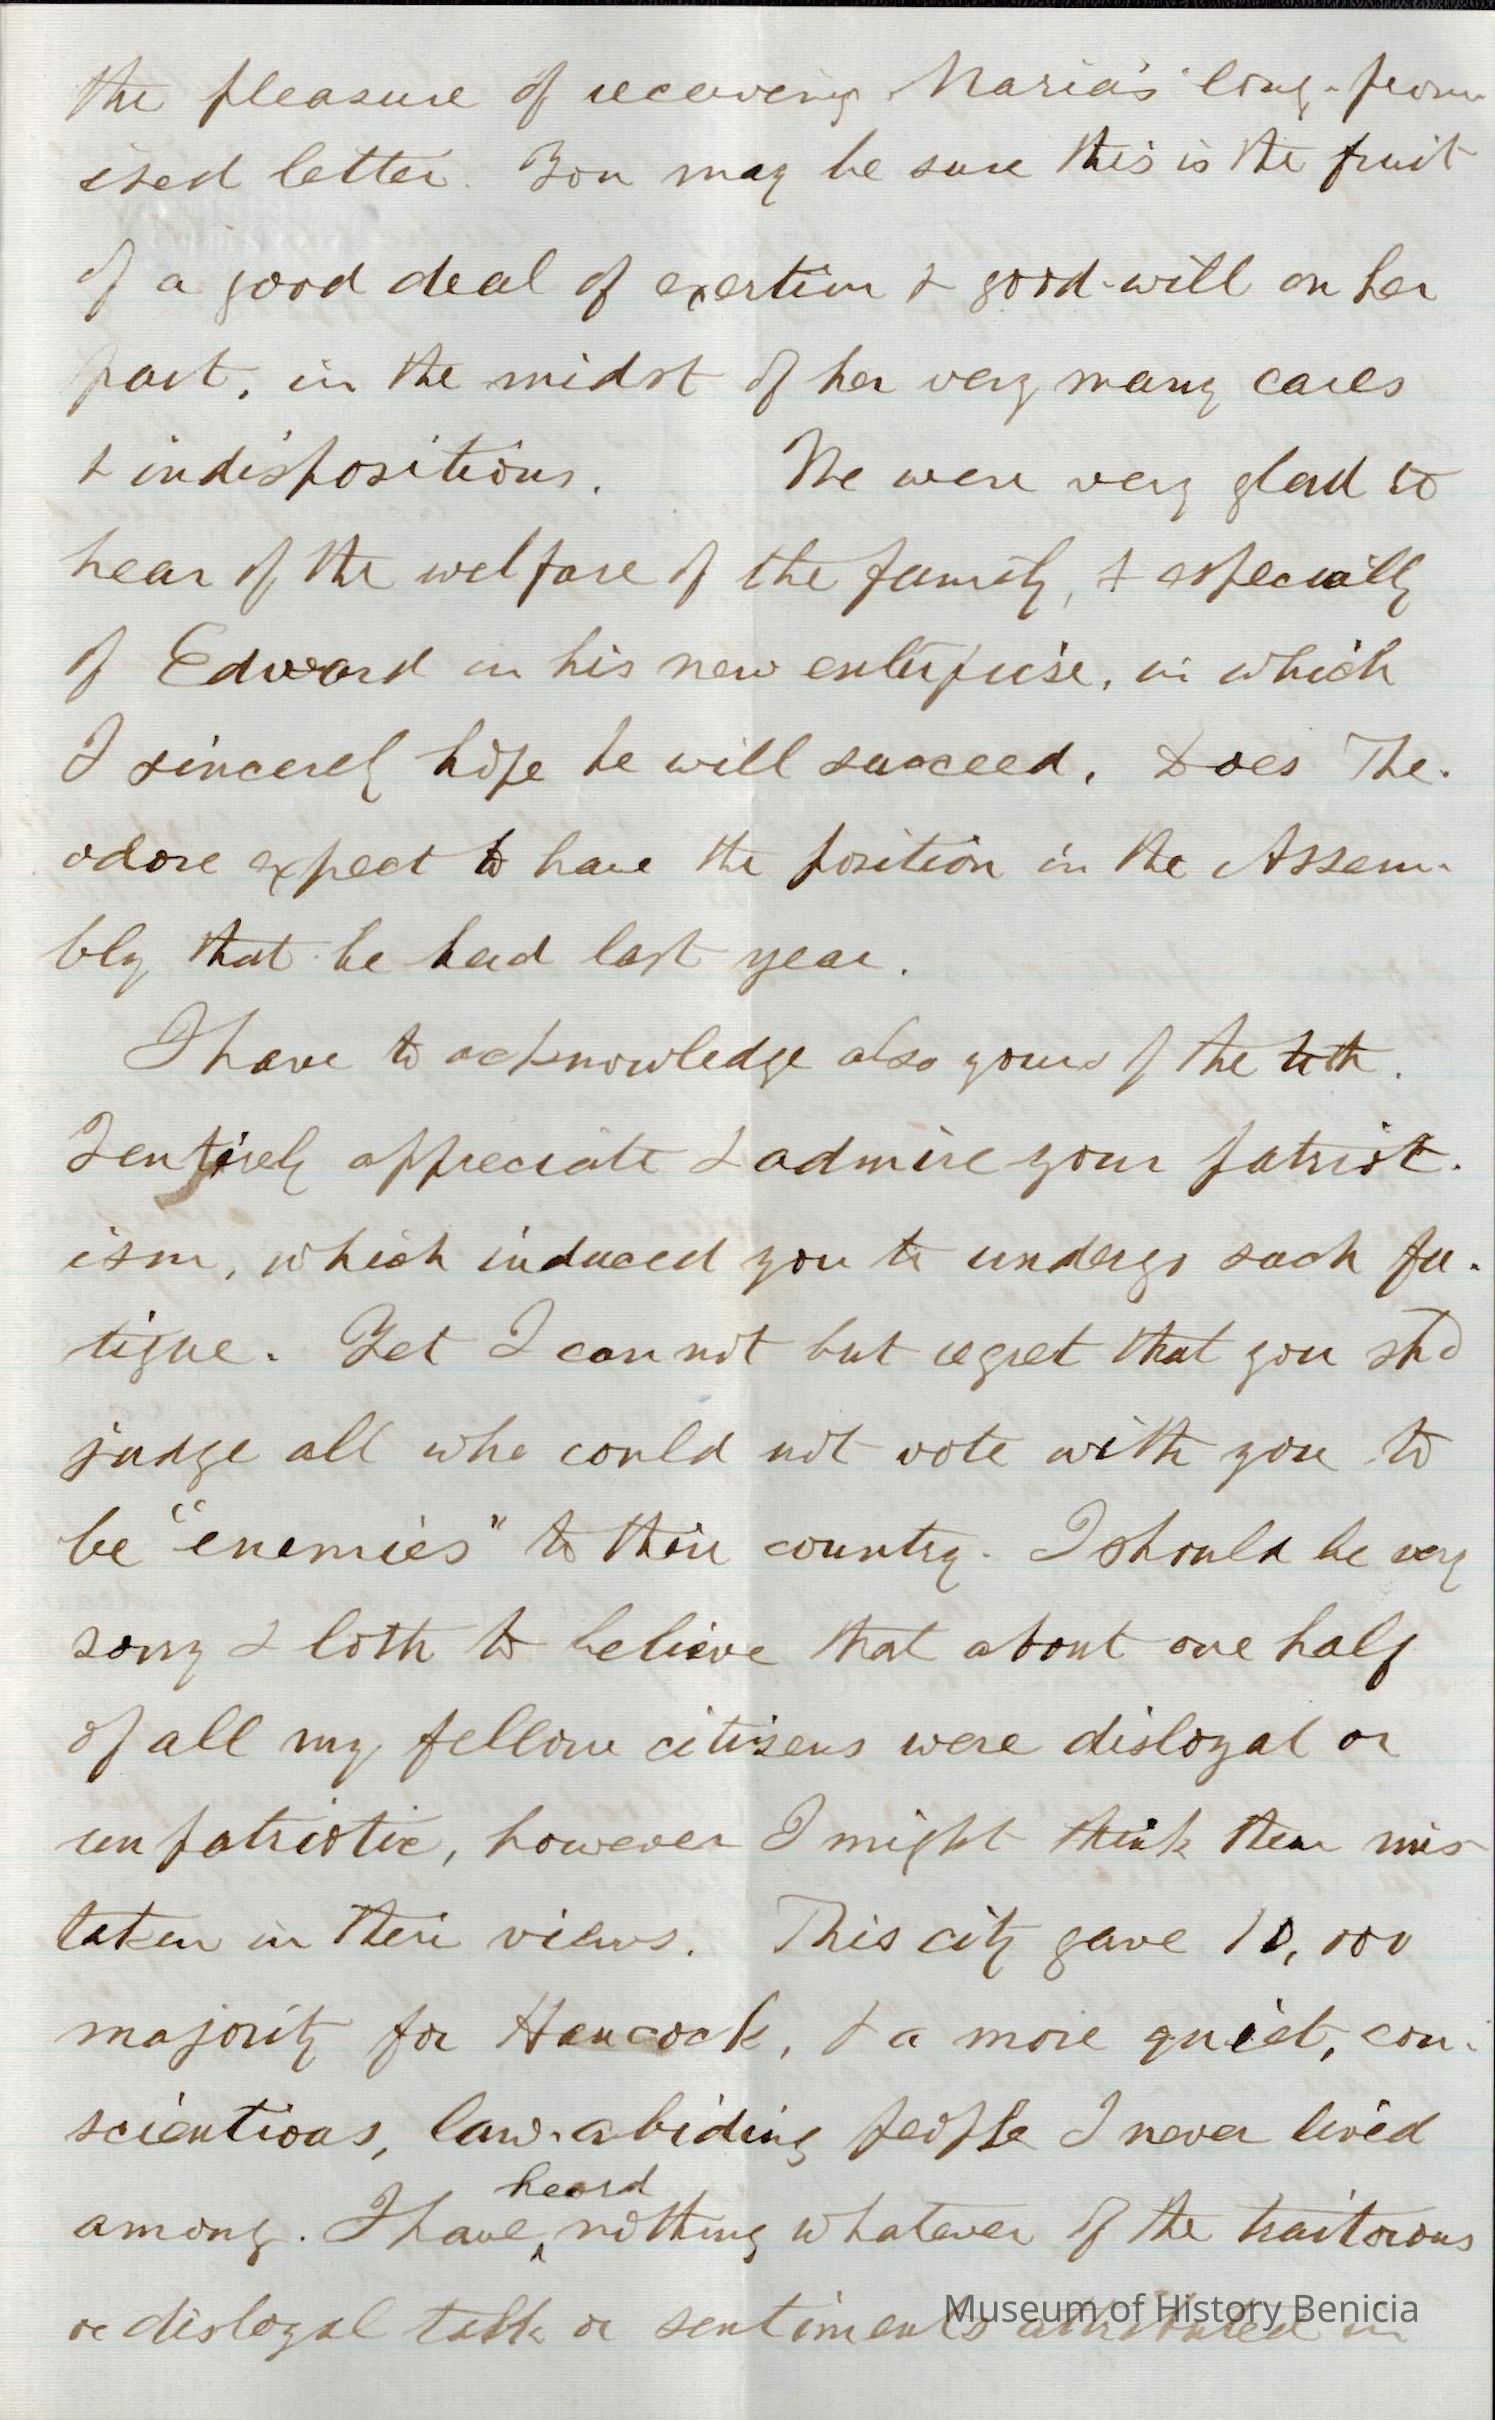 the pleasure of receiving Maria's long-prom-
ised letter. You may be sure this is the fruit
of a good deal of exertion & good-will on her
part, in the midst of her very many cares
& indispositions. We were very glad to
hear of the welfare of the family, & especially
of Edward in his new enterprise, in which
I sincerely hope he will succeed. Does The-
odore expect to have the position in the Assem-
bly that he had last year.
I have to acknowledge also yours of the
I entirely appreciate & admire your patriot-
ism, which induced you to undergo such fa-
tigue. Yet I can not but regret that you shd
judge all who could not vote with you to
be "enemies" to their country. I should be very
sorry & loth to believe that about one half
of all my fellow citizens were disloyal or
unpatriotic, however I might think them mis-
taken in their views. This city gave 10,000
majority for Hancock, & a more quiet, con-
scientious, law-abiding people I never lived
among. I have heard nothing whatever of the traitorous
or disloyal talk or sentiments attributed in
Museum of History Benicia